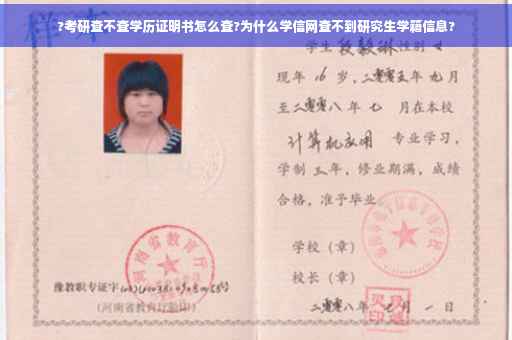 ?考研查不查学历证明书怎么查?为什么学信网查不到研究生学籍信息?
学生 段毅琳 性别 女
现年 16 岁,二零零五年 九月
至二零零八年 七 月在本校
计算机应用 专业学习,
学制 三 年,修业期满,成绩
合格,准予毕业
学校(章)
校长(章)
二零零八年 七月 一 日
河南省教育厅
豫教职专证字
(河南省教育厅验印)